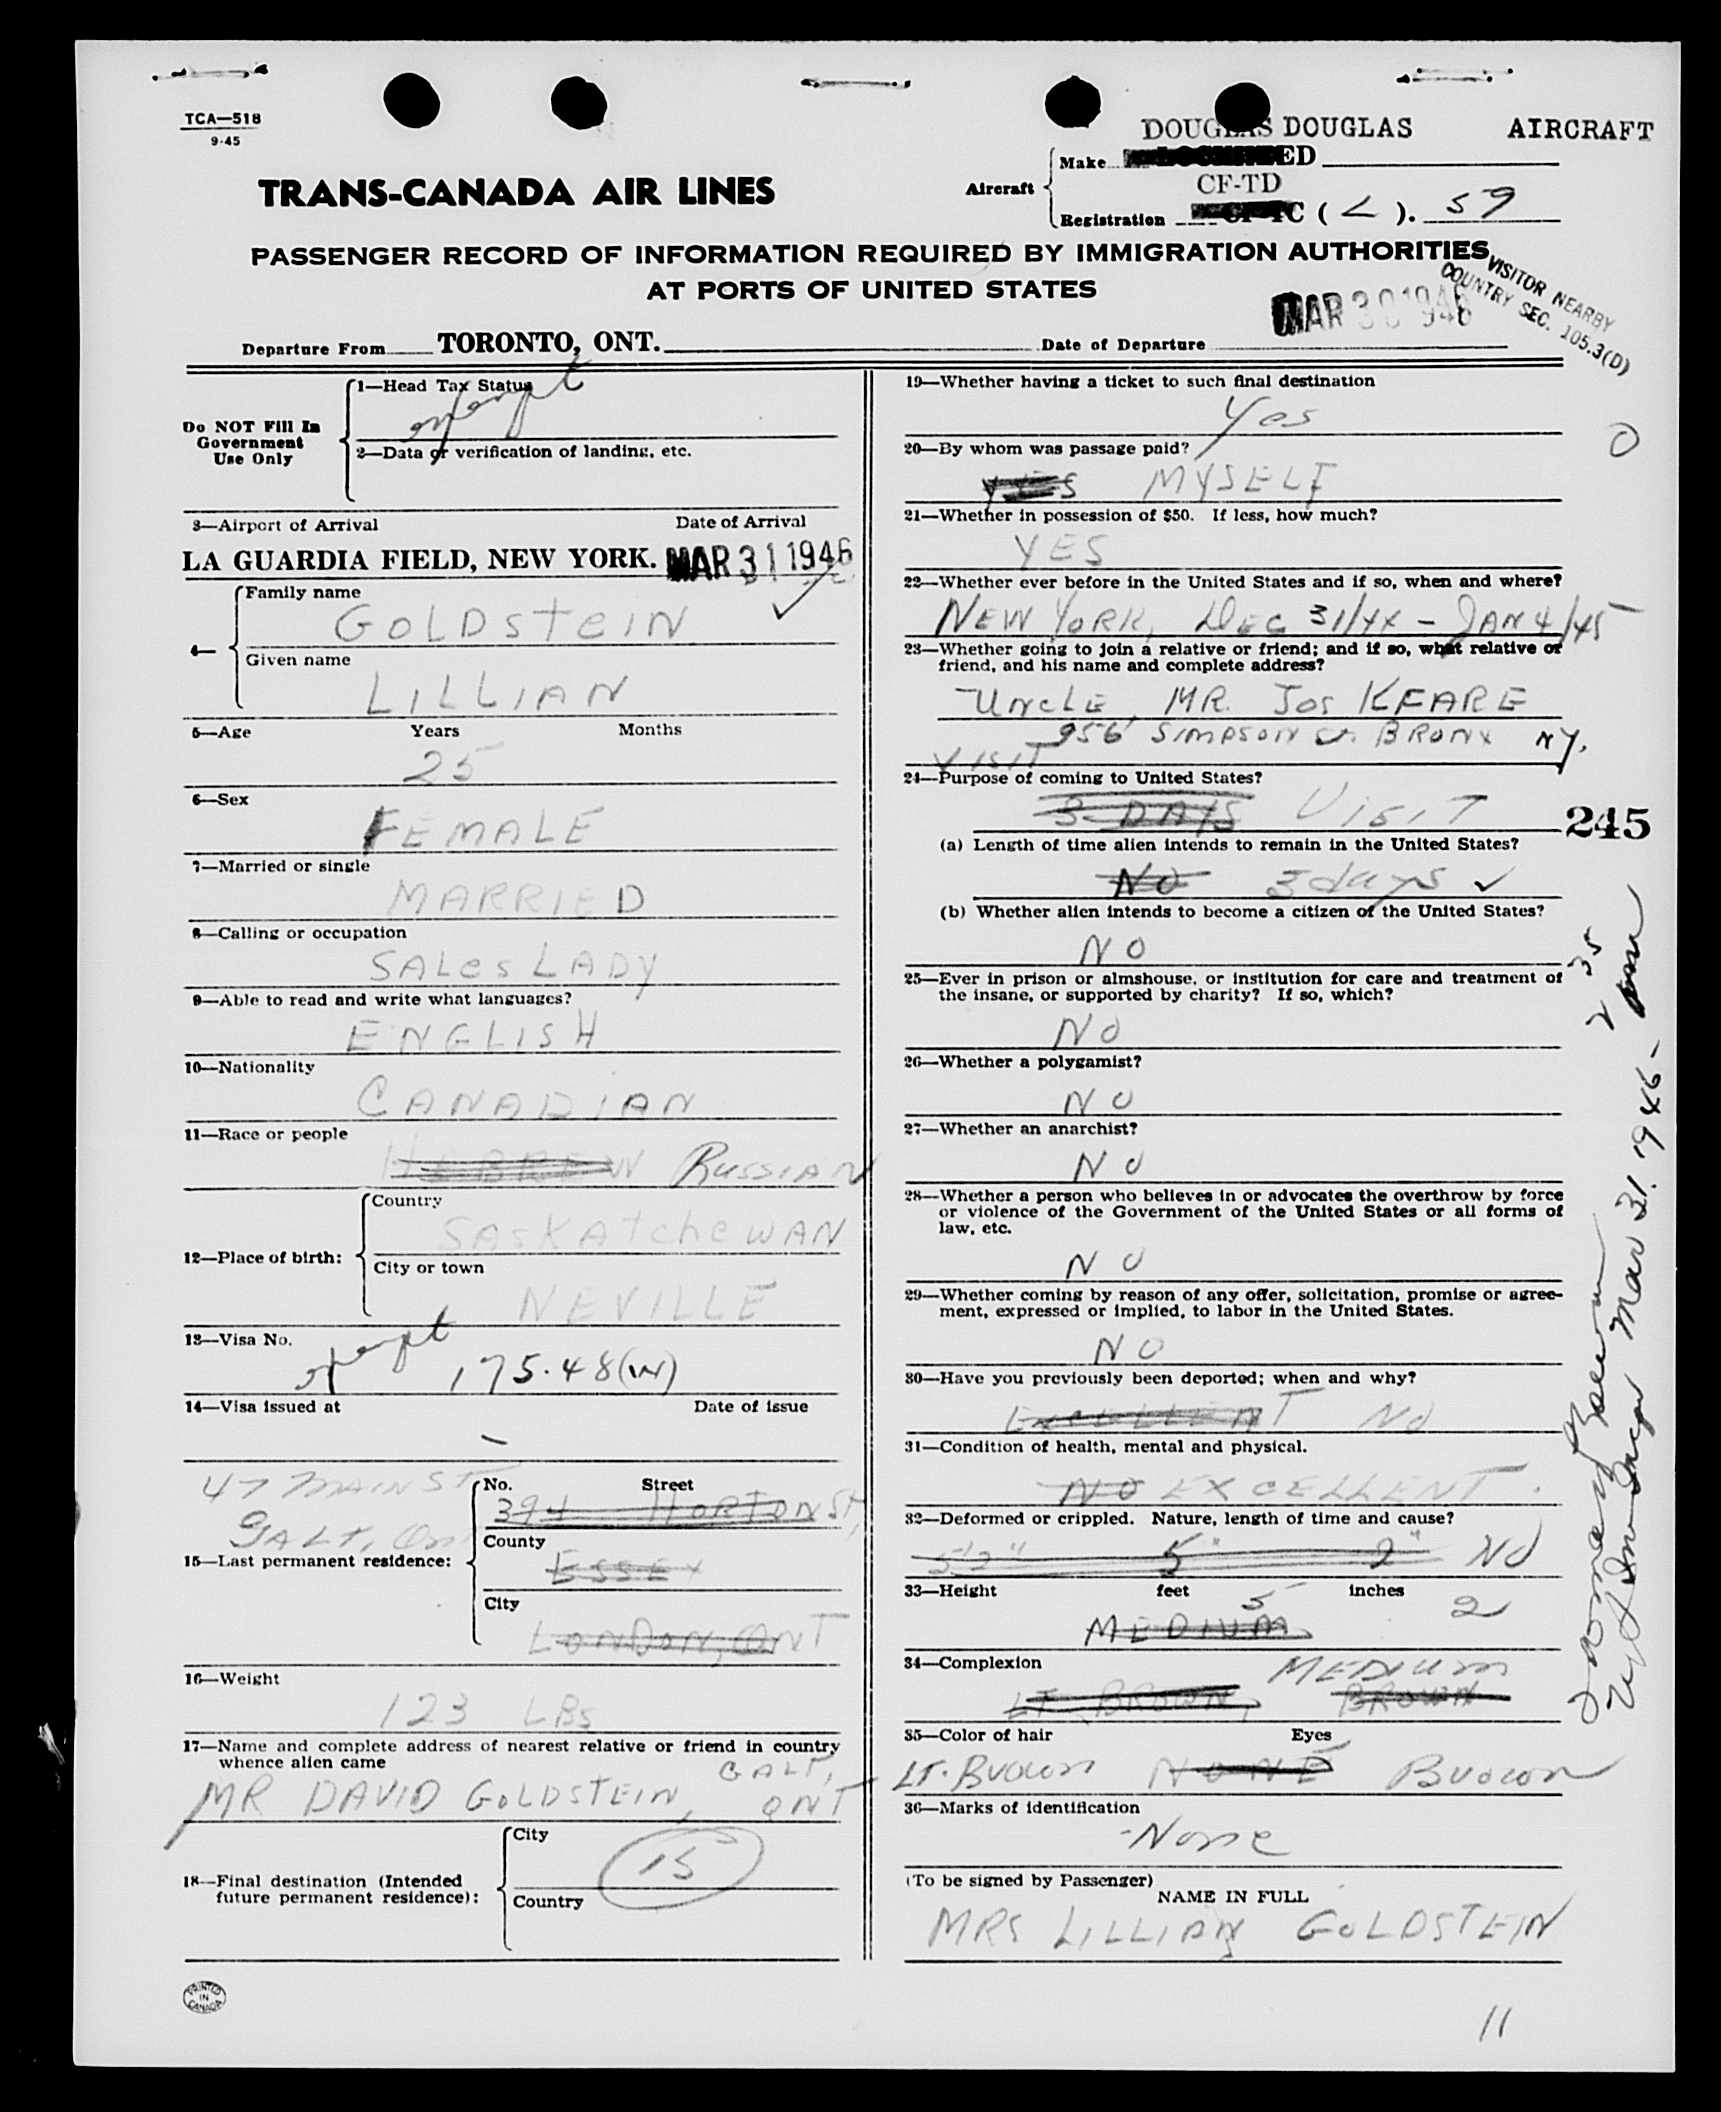 TCA—518
9-45
DOUGLAS DOUGLAS AIRCRAFT
Make
ED
TRANS-CANADA AIR LINES
Aircraft
CF-TD
Registration CF-TC ( L ). 59
PASSENGER RECORD OF INFORMATION REQUIRED BY IMMIGRATION AUTHORITIES
AT PORTS OF UNITED STATES
VISITOR NEARBY
COUNTRY SEC. 105.3(D)
MAR 30 1946
Departure From TORONTO, ONT. Date of Departure
Do NOT Fill In
Government
Use Only
1—Head Tax Status
exempt
2—Data or verification of landing, etc.
3—Airport of Arrival Date of Arrival
LA GUARDIA FIELD, NEW YORK. MAR 31 1946
4—
Family name
GOLDSTEIN
Given name
LILLIAN
5—Age Years Months
25
6—Sex
FEMALE
7—Married or single
MARRIED
8—Calling or occupation
SALES LADY
9—Able to read and write what languages?
ENGLISH
10—Nationality
CANADIAN
11—Race or people
HEBREW RUSSIAN
12—Place of birth:
Country
SASKATCHEWAN
City or town
NEVILLE
13—Visa No.
exempt 175.48(W)
14—Visa issued at Date of issue
–
47 MAIN ST
GALT, Ont
15—Last permanent residence:
No. Street
394 HORTON St,
County
ESSEX
City
LONDON, ONT
16—Weight
123 LBS
17—Name and complete address of nearest relative or friend in country
whence alien came
MR DAVID GOLDSTEIN, GALT,
ONT
18—Final destination (Intended
future permanent residence):
City
15
Country
PRINTED
IN
CANADA
19—Whether having a ticket to such final destination
Yes
0
20—By whom was passage paid?
YES MYSELF
21—Whether in possession of $50. If less, how much?
YES
22—Whether ever before in the United States and if so, when and where?
NEW YORK, DEC 31/44 – JAN 4/45
23—Whether going to join a relative or friend; and if so, what relative or
friend, and his name and complete address?
UNCLE, MR. JOS KFARE
956 SIMPSON St. BRONX NY.
VISIT
24—Purpose of coming to United States?
3 DAYS VISIT
245
(a) Length of time alien intends to remain in the United States?
NO 3 days
(b) Whether alien intends to become a citizen of the United States?
NO
25—Ever in prison or almshouse, or institution for care and treatment of
the insane, or supported by charity? If so, which?
NO
26—Whether a polygamist?
NO
27—Whether an anarchist?
NO
28—Whether a person who believes in or advocates the overthrow by force
or violence of the Government of the United States or all forms of
law, etc.
NO
29—Whether coming by reason of any offer, solicitation, promise or agree-
ment, expressed or implied, to labor in the United States.
NO
30—Have you previously been deported; when and why?
EXCELLENT NO
31—Condition of health, mental and physical.
NO EXCELLENT.
32—Deformed or crippled. Nature, length of time and cause?
5'2" 5" 2" NO
33—Height feet 5 inches 2
MEDIUM
34—Complexion MEDIUM
LT. BROWN, BROWN
35—Color of hair Eyes
LT. Brown NONE Brown
36—Marks of identification
None
(To be signed by Passenger)
NAME IN FULL
MRS LILLIAN GOLDSTEIN
Mar 31. 1946 –
2 35
11